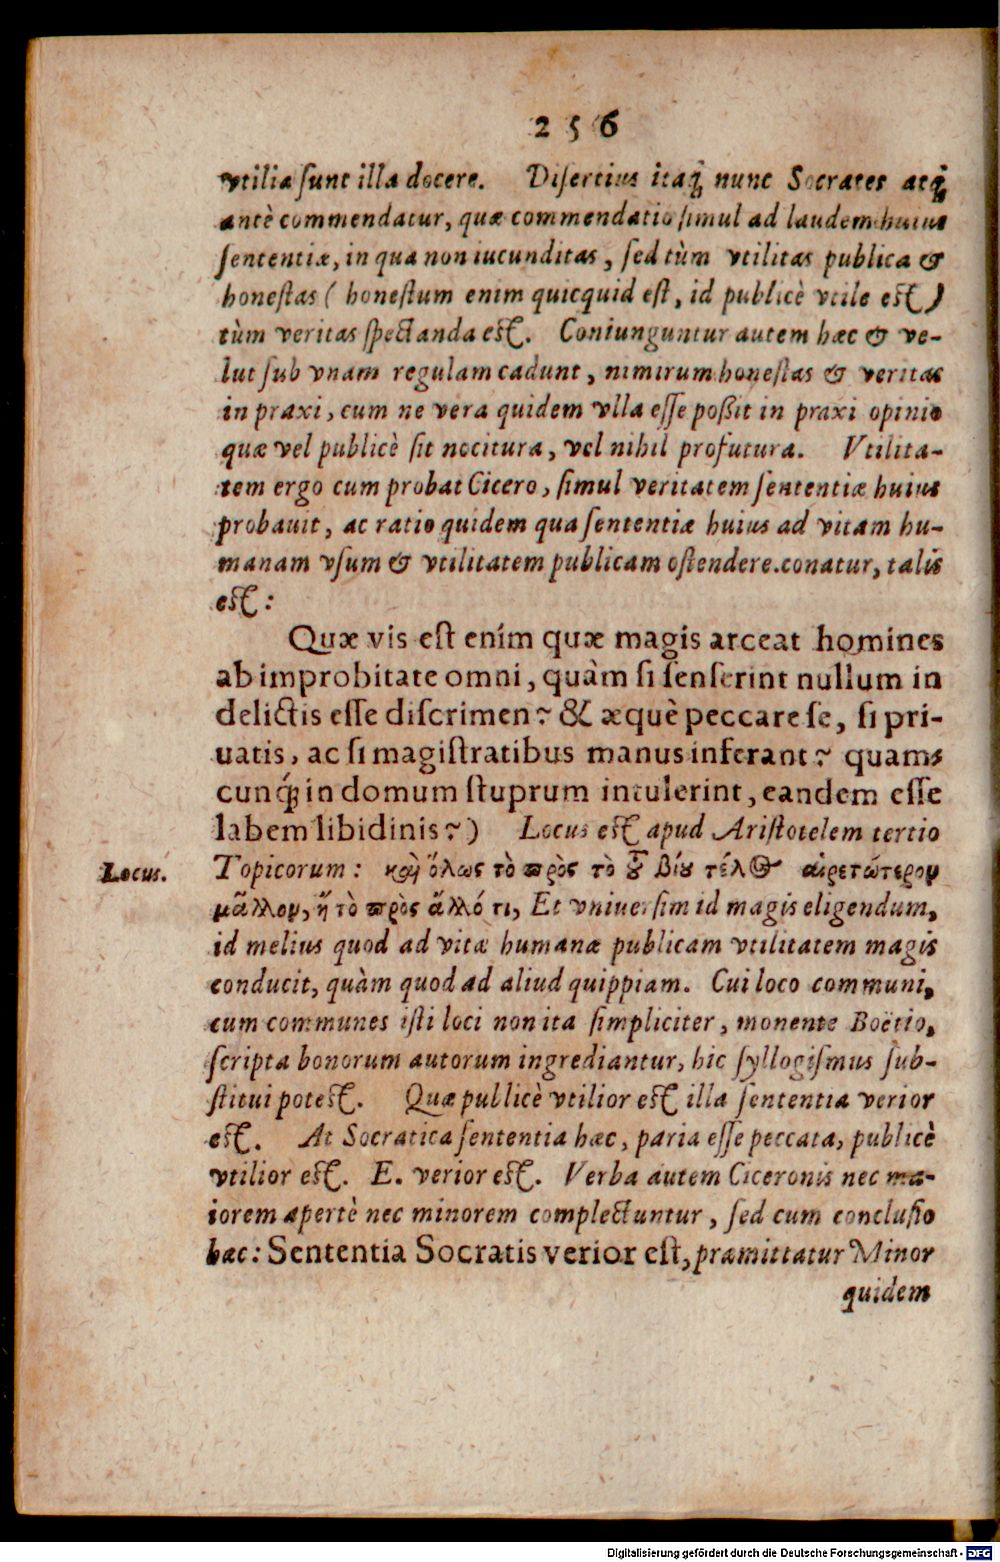 2 5 6
vtilia ſunt illa docere. Diſertius itaq́; nunc Socrates atq́;
antè commendatur, quæ commendatio ſimul ad laudem huius
ſententiæ, in qua non iucunditas, ſed tùm vtilitas publica &
honeſtas ( honeſtum enim quicquid eſt, id publicè vtile eſt )
tùm veritas ſpectanda eſt. Coniunguntur autem hæc & ve-
lut ſub vnam regulam cadunt, nimirum honeſtas & veritas
in praxi, cum ne vera quidem vlla eſſe poßit in praxi opinio
quæ vel publicè ſit nocitura, vel nihil profutura. Vtilita-
tem ergo cum probat Cicero, ſimul veritatem ſententiæ huius
probauit, ac ratio quidem qua ſententiæ huius ad vitam hu-
manam vſum & vtilitatem publicam oſtendere conatur, talis
eſt:
Quæ vis eſt enim quæ magis arceat homines
ab improbitate omni, quàm ſi ſenſerint nullum in
delictis eſſe diſcrimen? & æquè peccare ſe, ſi pri-
uatis, ac ſi magiſtratibus manus inferant? quam-
cunq́; in domum ſtuprum intulerint, eandem eſſe
labem libidinis?) Locus eſt apud Ariſtotelem tertio
Locus.
Topicorum: καὶ ὅλως τὸ πρὸς τὸ τοῦ βίου τέλος αἱρετώτερον
μᾶλλον, ἤ τὸ πρὸς ἄλλό τι, Et vniuerſim id magis eligendum,
id melius quod ad vitæ humanæ publicam vtilitatem magis
conducit, quàm quod ad aliud quippiam. Cui loco communi,
cum communes iſti loci non ita ſimpliciter, monente Boëtio,
ſcripta bonorum autorum ingrediantur, hic ſyllogiſmus ſub-
ſtitui poteſt. Quæ pullicè vtilior eſt illa ſententia verior
eſt. At Socratica ſententia hæc, paria eſſe peccata, publicè
vtilior eſt. E. verior eſt. Verba autem Ciceronis nec ma-
iorem apertè nec minorem complectuntur, ſed cum concluſio
hæc: Sententia Socratis verior eſt, præmittatur Minor
quidem
Digitalisierung gefördert durch die Deutsche Forschungsgemeinschaft - DFG